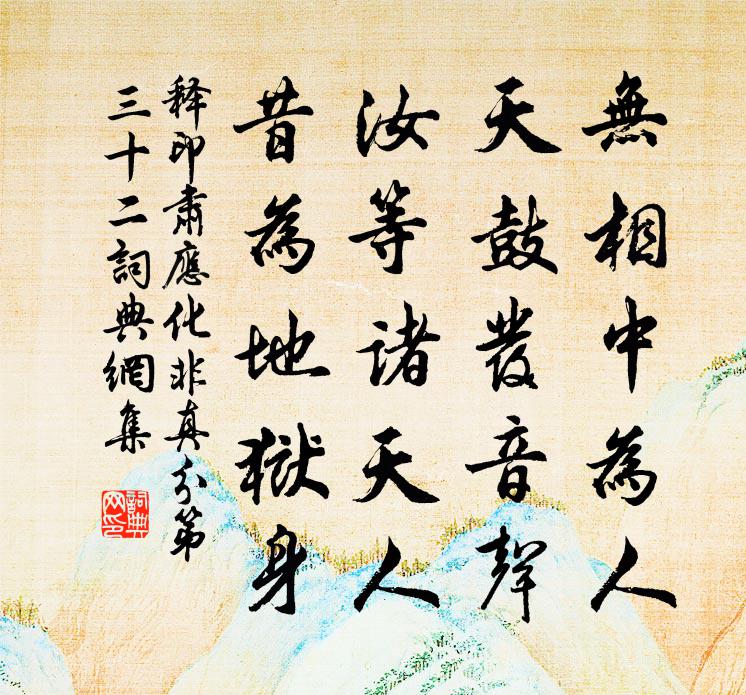 無相中為人
天鼓發音聲
汝等諸天人
昔為地獄身
释印肅應化非真分第
三十二詞典網集
詞典網印